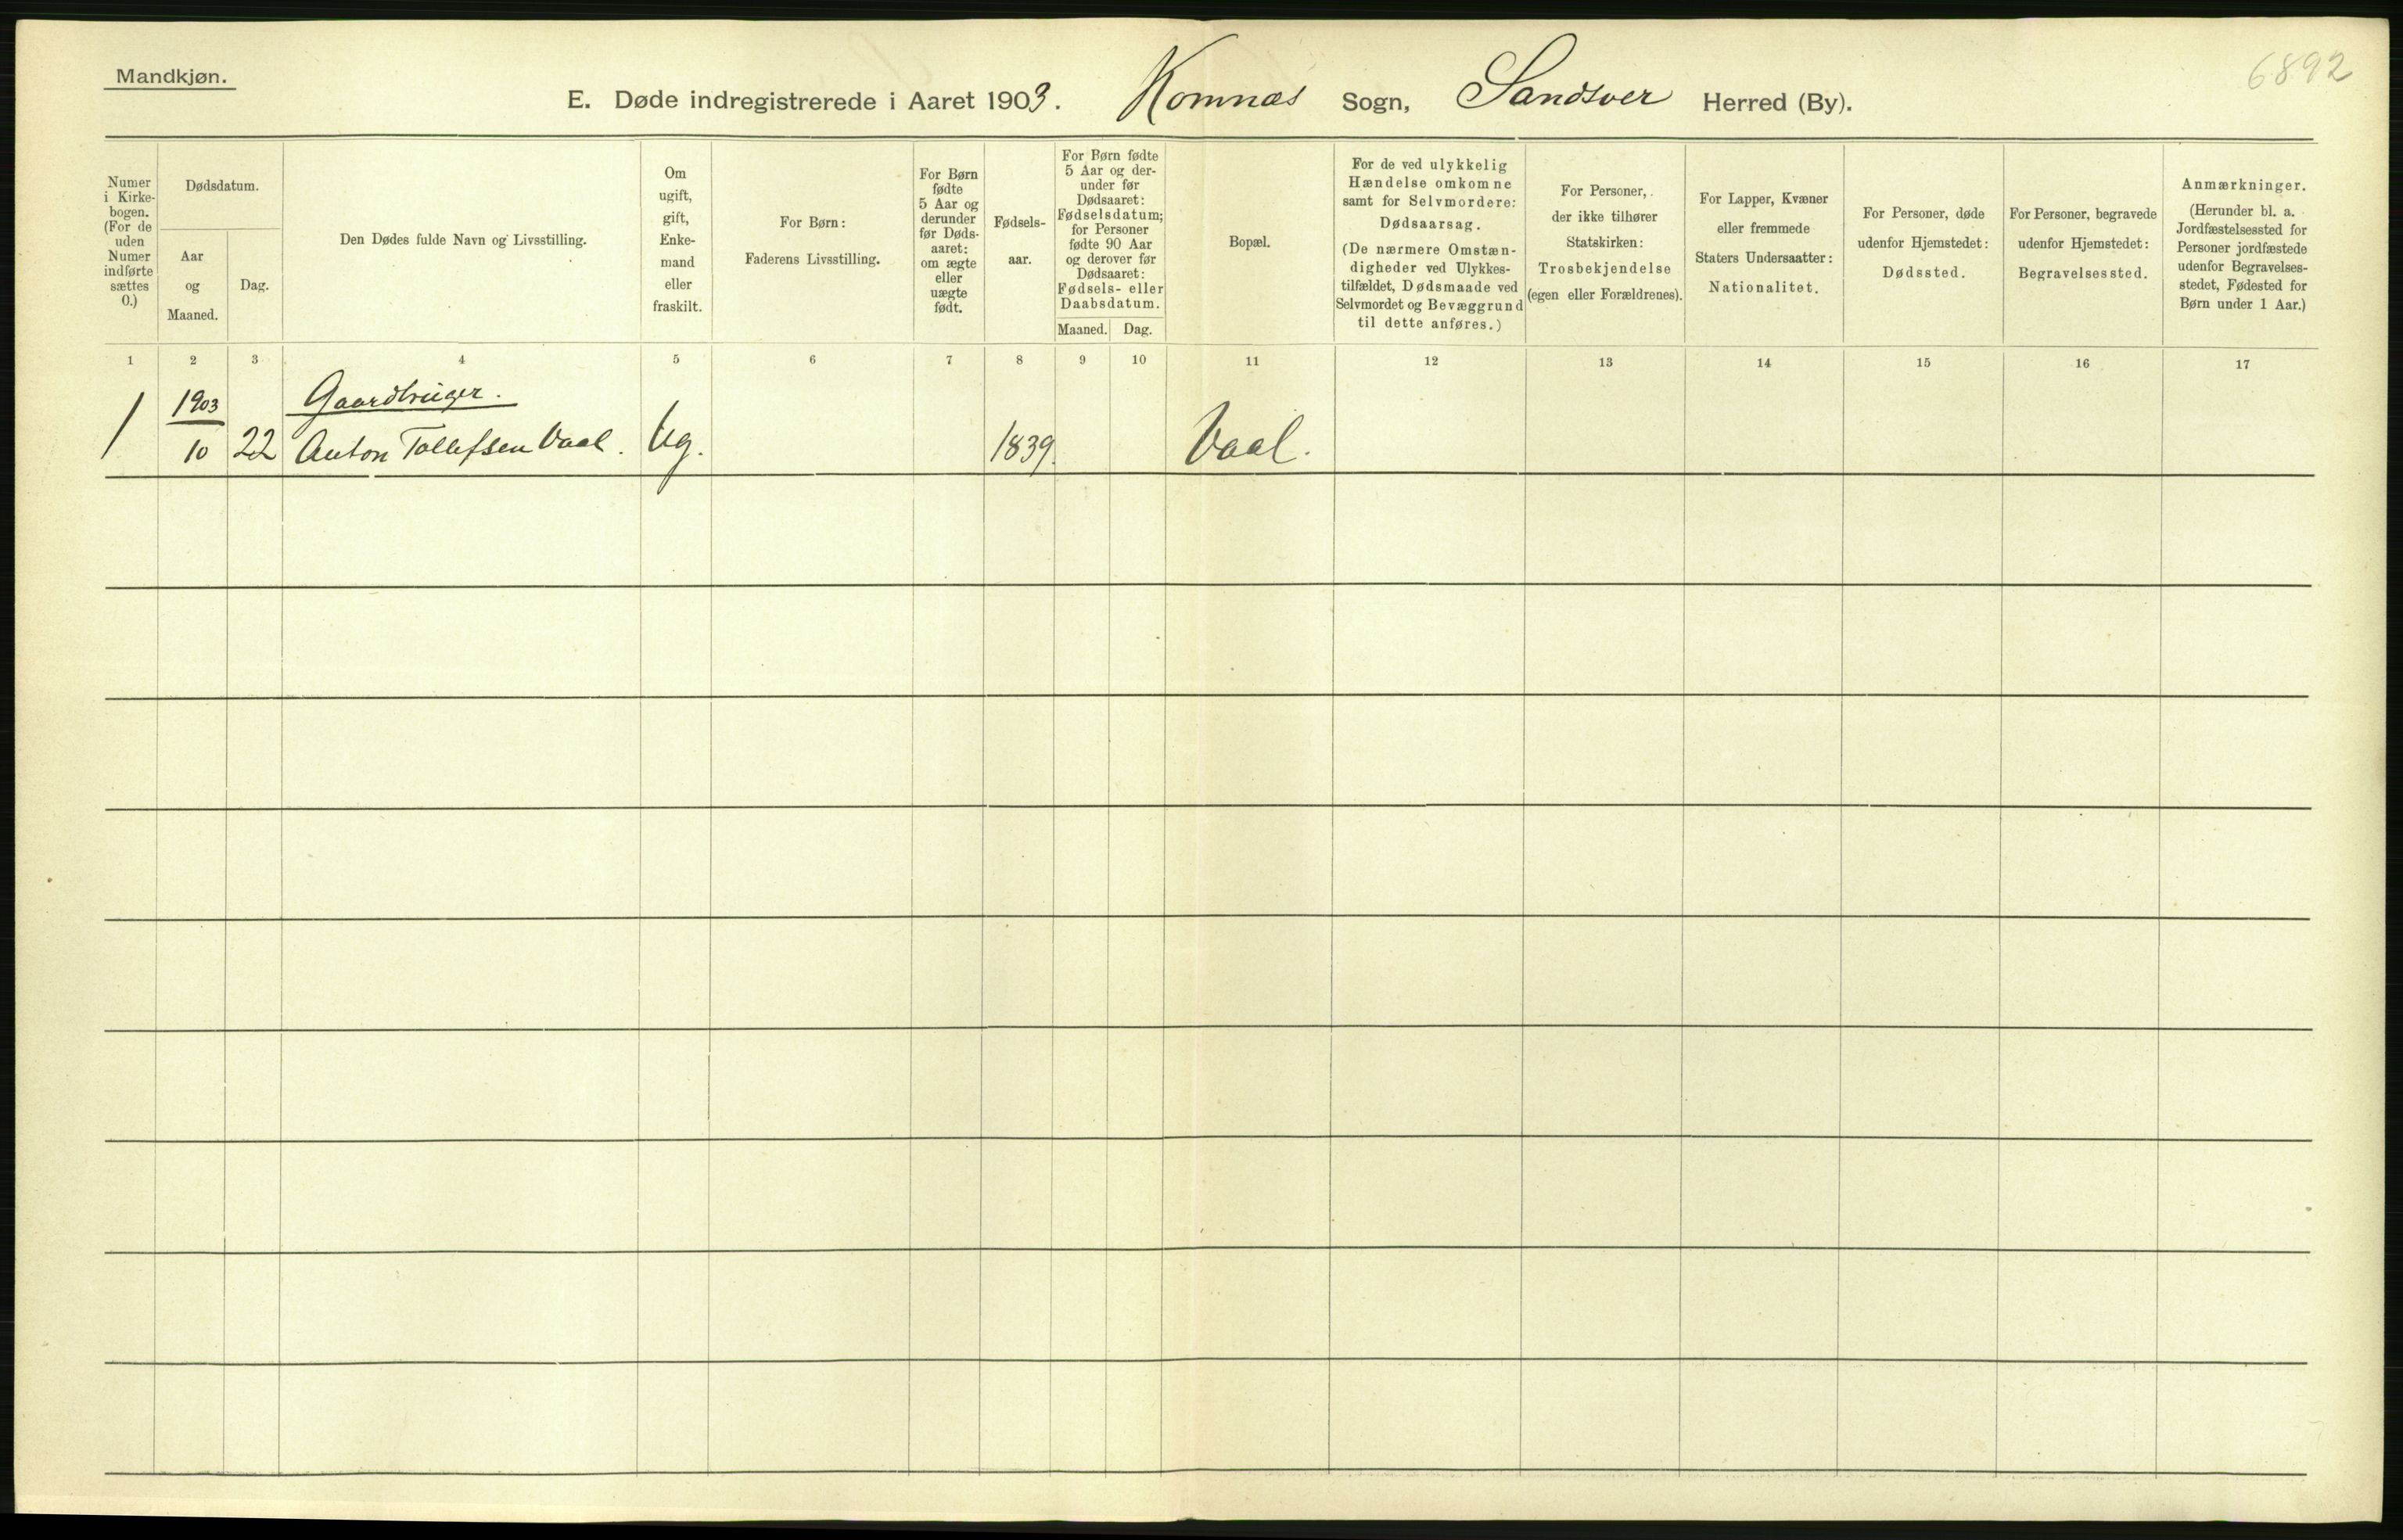 Mandkjøn.
6892
E. Døde indregistrerede i Aaret 1903. Komnæs Sogn, Sandsver Herred (By).
Numer i Kirkebogen. (For de uden Numer indførte sættes 0.)
Dødsdatum.
Aar og Maaned.
Dag.
Den Dødes fulde Navn og Livsstilling.
Om ugift, gift, Enkemand eller fraskilt.
For Børn: Faderens Livsstilling.
For Børn fødte 5 Aar og derunder før Dødsaaret: om ægte eller uægte født.
Fødselsaar.
For Børn fødte 5 Aar og derunder før Dødsaaret: Fødselsdatum; for Personer fødte 90 Aar og derover før Dødsaaret: Fødsels- eller Daabsdatum.
Maaned. Dag.
Bopæl.
For de ved ulykkelig Hændelse omkomne samt for Selvmordere: Dødsaarsag. (De nærmere Omstændigheder ved Ulykkestilfældet, Dødsmaade ved Selvmordet og Bevæggrund til dette anføres.)
For Personer, der ikke tilhører Statskirken: Trosbekjendelse (egen eller Forældrenes).
For Lapper, Kvæner eller fremmede Staters Undersaatter: Nationalitet.
For Personer, døde udenfor Hjemstedet: Dødssted.
For Personer, begravede udenfor Hjemstedet: Begravelsessted.
Anmærkninger. (Herunder bl. a. Jordfæstelsessted for Personer jordfæstede udenfor Begravelsesstedet, Fødested for Børn under 1 Aar.)
1 2 3 4 5 6 7 8 9 10 11 12 13 14 15 16 17
1903 Gaardbruger.
1 10 22 Anton Tollefsen Vaal. Ug. 1839. Vaal.